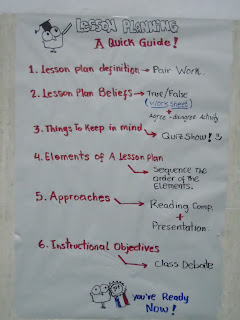 LESSON PLANNING
A Quick Guide!
1. Lesson plan definition → Pair Work.
2. Lesson Plan Beliefs → True/False
(Worksheet)
+
Agree - disagree Activity
3. Things To Keep in mind
→ Quiz Show! :)
4. Elements of A Lesson Plan
→ Sequence the
order of the
Elements.
5. Approaches
→ Reading Comp.
+
Presentation.
6. Instructional Objectives
→ Class Debate
You're Ready
Now!